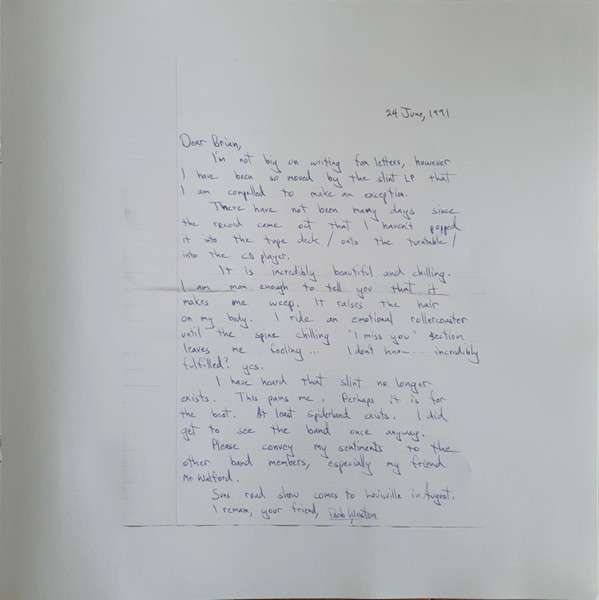 24 June, 1991
Dear Brian,
I'm not big on writing fan letters, however
I have been so moved by the slint LP that
I am compelled to make an exception.
There have not been many days since
the record came out that I haven't popped
it into the tape deck / onto the turntable /
into the CD player.
It is incredibly beautiful and chilling.
I am man enough to tell you that it
makes me weep. It raises the hair
on my body. I ride an emotional rollercoaster
until the spine chilling "I miss you" section
leaves me feeling... I dont know... incredibly
fulfilled? yes.
I have heard that slint no longer
exists. This pains me. Perhaps it is for
the best. At least spiderland exists. I did
get to see the band once anyway.
Please convey my sentiments to the
other band members, especially my friend
Mr Walford.
road show comes to Louisville in August.
I remain, your friend,